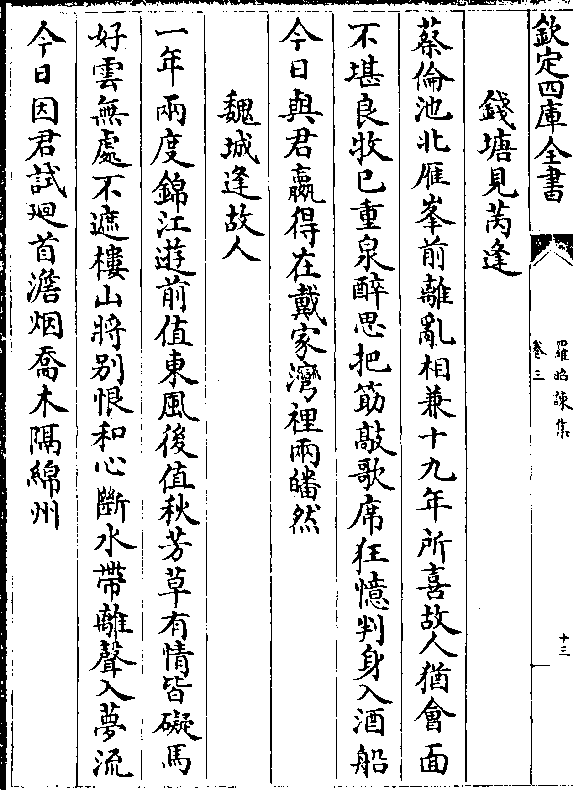 欽定四庫全書
羅昭諫集
卷三
十三
錢塘見芮逢
蔡倫池北雁峯前離亂相兼十九年所喜故人猶會面
不堪良牧已重泉醉思把筯敲歌席狂憶判身入酒船
今日與君贏得在戴家灣裡兩皤然
魏城逢故人
一年兩度錦江遊前值東風後值秋芳草有情皆礙馬
好雲無處不遮樓山將别恨和心斷水帶離聲入夢流
今日因君試廻首澹烟喬木隔綿州